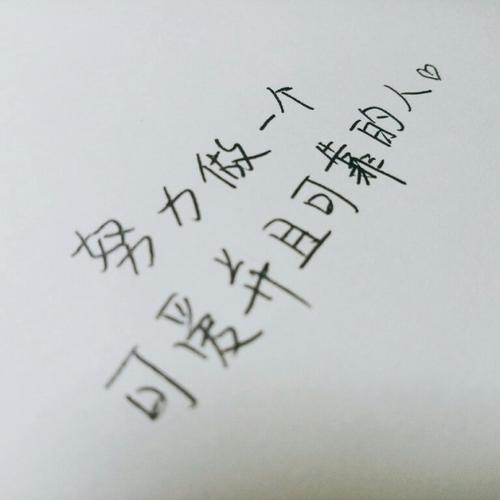 努力做一个
可爱并且可靠的人♡